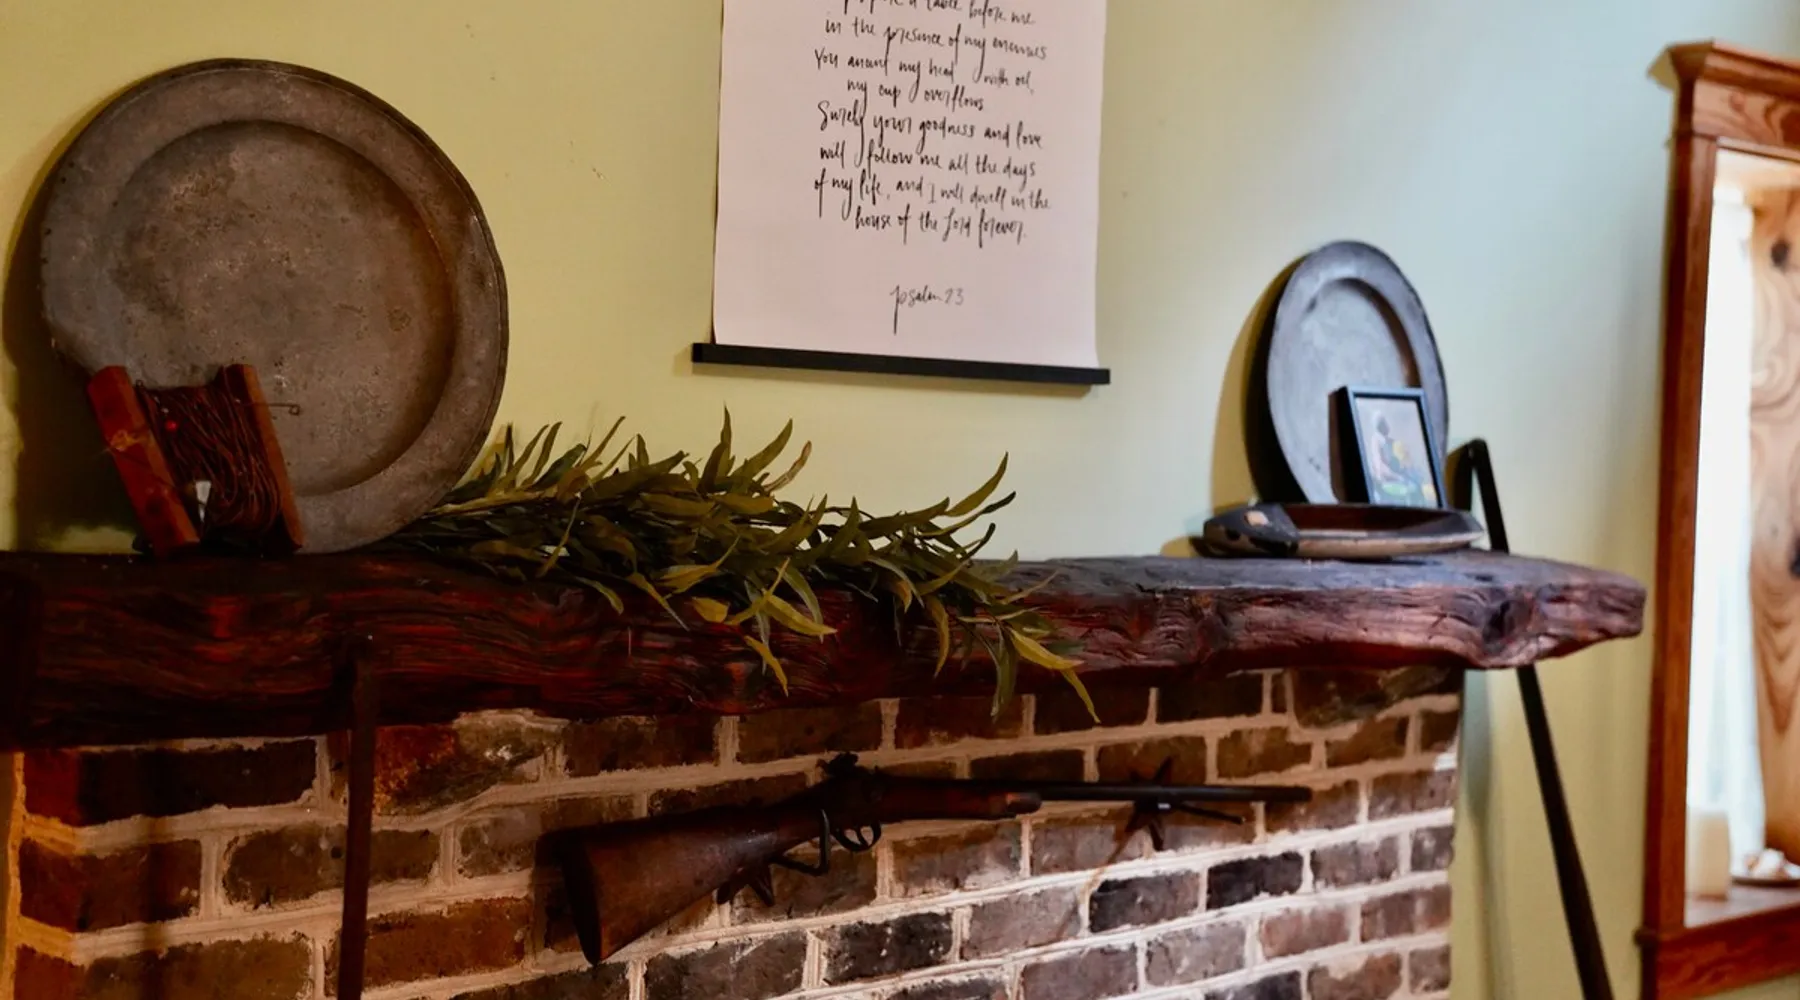 a table before me
in the presence of my enemies
You anoint my head with oil,
my cup overflows
Surely your goodness and love
will follow me all the days
of my life, and I will dwell in the
house of the Lord forever.
psalm 23